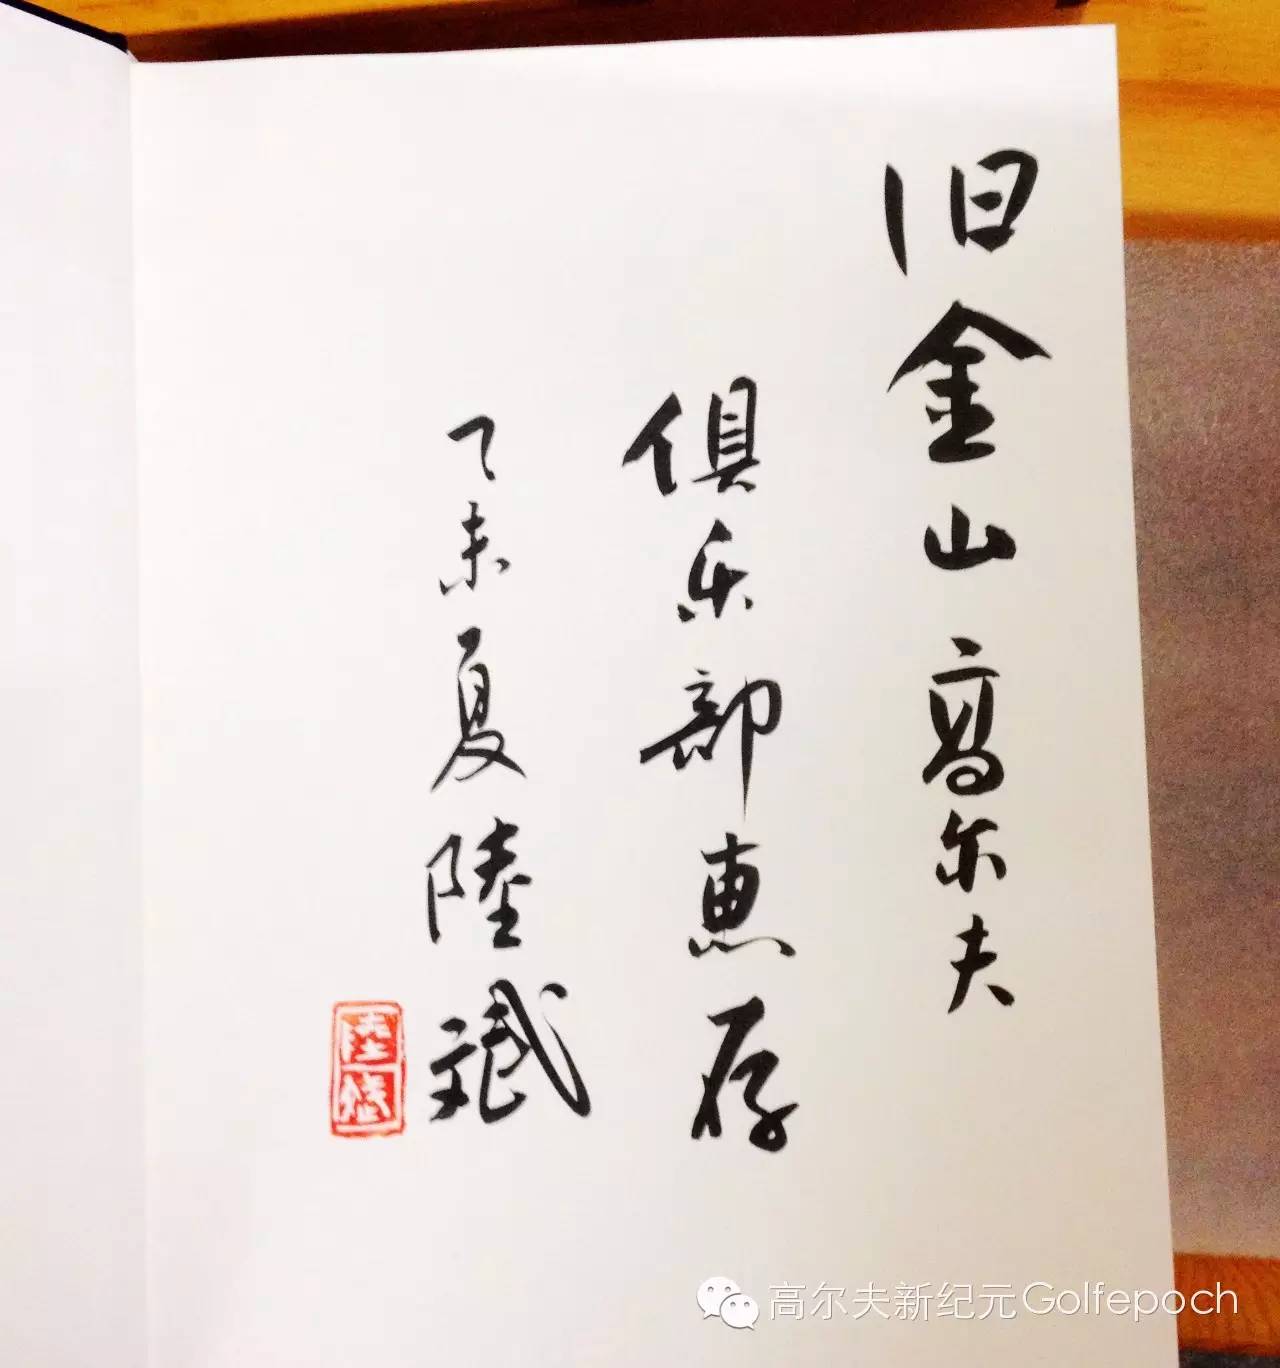 旧金山高尔夫
俱乐部惠存
乙未夏陸斌
陸斌
高尔夫新纪元Golfepoch